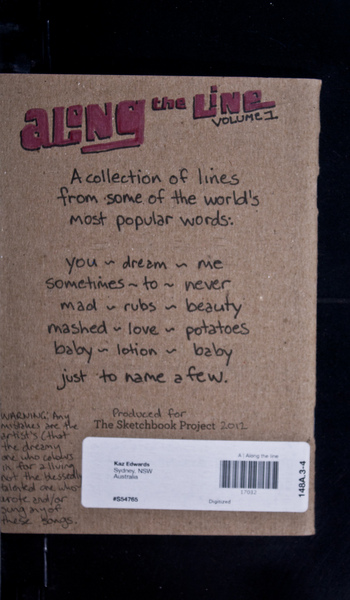 aLoNG the LiNE
VOLUME 1
A collection of lines
from some of the world's
most popular words:
you ~ dream ~ me
sometimes ~ to ~ never
mad ~ rubs ~ beauty
mashed ~ love ~ potatoes
baby ~ lotion ~ baby
just to name a few.
Produced for
The Sketchbook Project 2012
WARNING: Any
mistakes are the
artist's (that
the dreamy
one who colours
in for a living
not the blessedly
talented one who
wrote and/or
sung any of
these songs.
Kaz Edwards
Sydney, NSW
Australia
#S54765
A : Along the line
Digitized
148A.3-4